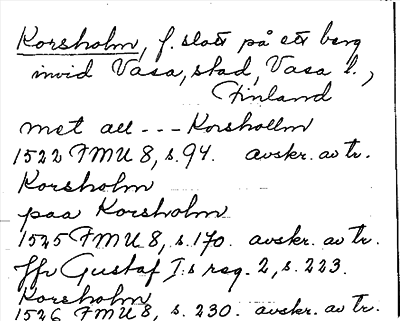 Korsholm, f. slott på ett berg
invid Vasa, stad, Vasa l.,
Finland
met all --- Korshollm
1522 FMU 8, s. 94. avskr. av tr.
Korsholm
paa Korsholm
1525 FMU 8, s. 170. avskr. av tr.
Jfr Gustaf I:s reg. 2, s. 223.
Korsholm
1526 FMU 8, s. 230. avskr. av tr.